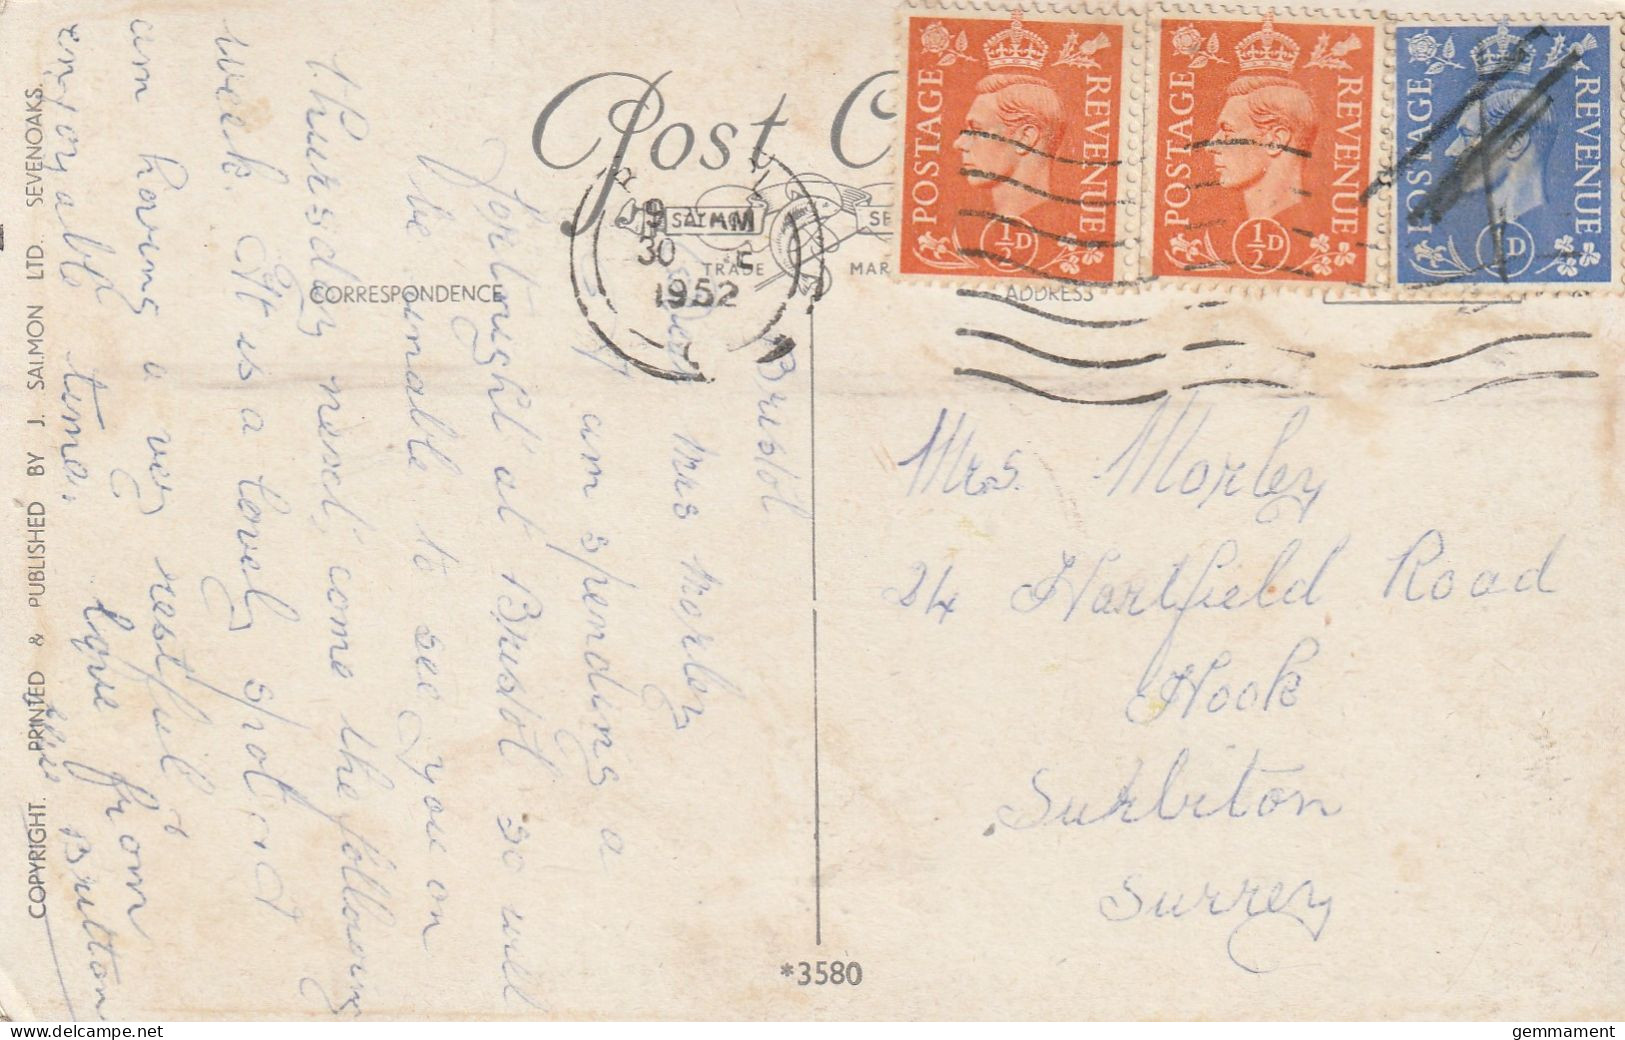 Post C
SALMON SE
TRADE MAR
CORRESPONDENCE
ADDRESS
POSTAGE REVENUE
½D
POSTAGE REVENUE
½D
POSTAGE REVENUE
D
9 AM
30
1952
Bristol.
Dear Mrs Morley
I am spending a
fortnight at Bristol so will
be unable to see you on
Thursday next, come the following
week. It is a lovely spot &
am having a very restful &
enjoyable time.
love from
Britton
Mrs. Morley
24 Hartfield Road
Hook
Surbiton
Surrey
*3580
COPYRIGHT. PRINTED & PUBLISHED BY J. SALMON LTD. SEVENOAKS.
gemmament